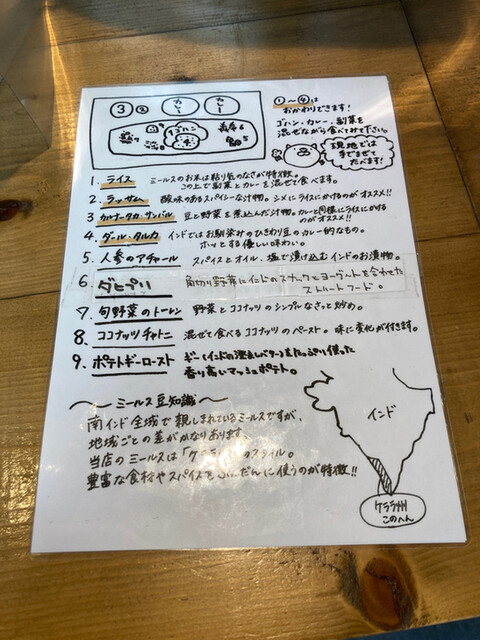 ③ ② カレー カレー
ゴハン
①〜④は
おかわりできます！
ゴハン、カレー、副菜を
混ぜながら食べてみて下さい。
現地では
手でまぜて
たべます！
1. ライス ミールスのお米は粘り気のなさが特徴。
この上で副菜とカレーを混ぜて食べます。
2. ラッサム 酸味のあるスパイシーな汁物。シメにライスにかけるのがオススメ!!
3. カルナータカ サンバル 豆と野菜を煮込んだ汁物。カレーと同様にライスにかける
のがオススメ!!
4. ダール・タルカ インドではお馴染みのひきわり豆のカレー的なもの。
ホッとする優しい味わい。
5. 人参のアチャール スパイスとオイル、塩で漬け込むインドのお漬物。
6 ダヒプリ 角切り野菜とインドのスナックとヨーグルトを合わせた
ストリートフード。
7. 旬野菜のトーレン 野菜とココナッツのシンプルなさっと炒め。
8. ココナッツチャトニ 混ぜて食べるココナッツのペースト。味に変化が付きます。
9. ポテトギーロースト ギー(インドの澄ましバター)をたっぷり使った
香り高いマッシュポテト。
〜ミールス豆知識〜
南インド全域で親しまれているミールスですが、
地域ごとの差がかなりあります。
当店のミールスは「ケララ スタイル。
豊富な食材やスパイスをふんだんに使うのが特徴!!
インド
ケララ州
このへん